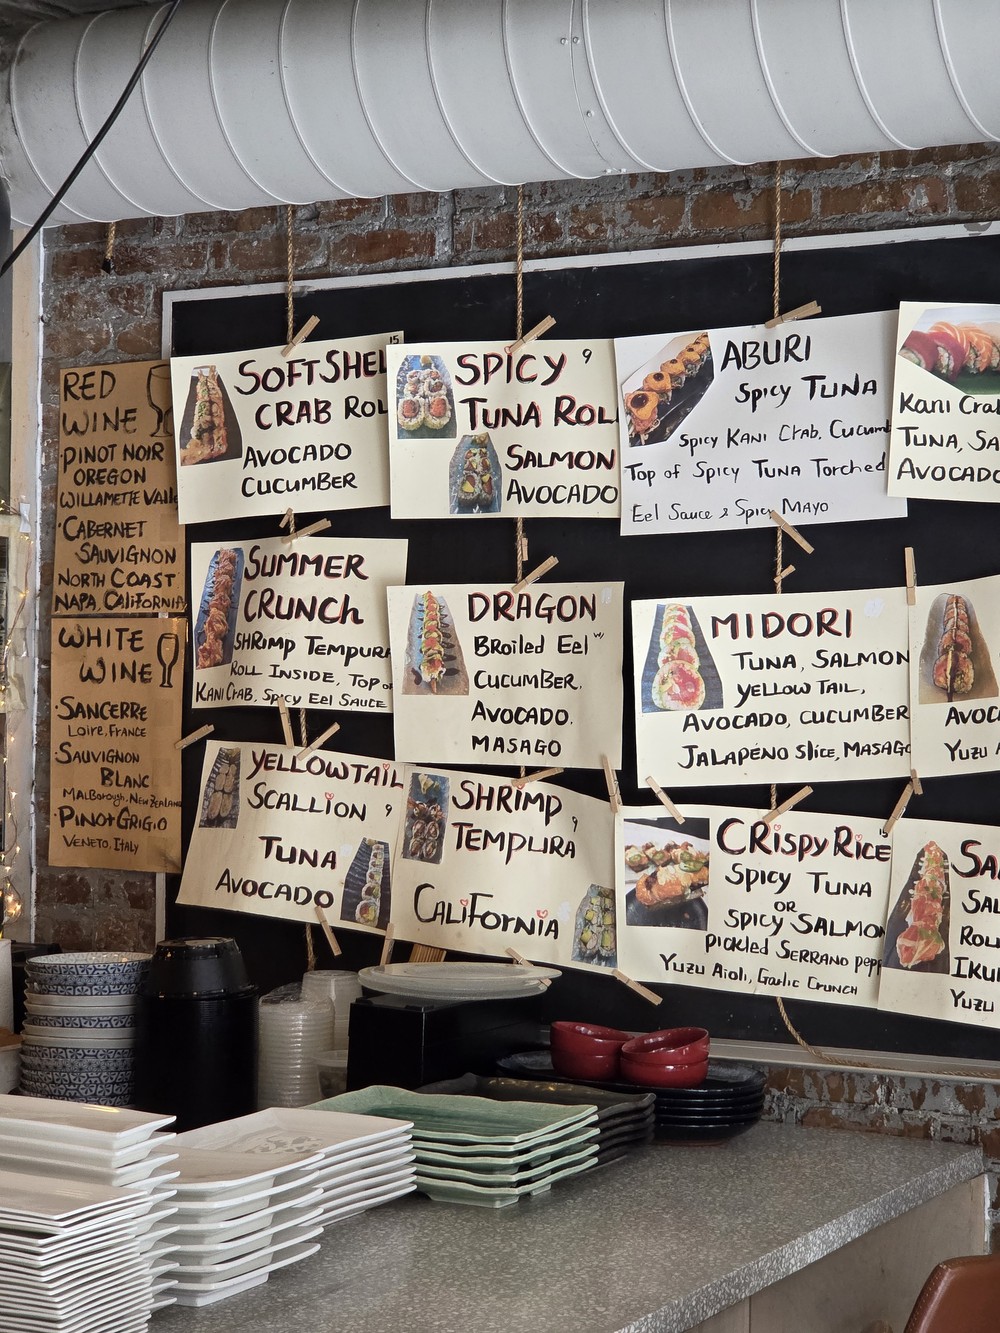 RED
WINE
·PINOT NOIR
OREGON
WILLAMETTE Valle
·CABERNET
SAUVIGNON
NORTH COAST
NAPA, CALIFORNIA
WHITE
WINE
·SANCERRE
LOIRE, FRANCE
·SAUVIGNON
BLANC
MALBOROUGH, NEW ZEALAND
·PINOT GRIGIO
VENETO, ITALY
15
SOFT SHEL
CRAB ROL
AVOCADO
CUCUMBER
SPICY 9
TUNA ROL
SALMON
AVOCADO
ABURI
SPICY TUNA
SPICY KANI CRAB, CUCUMB
TOP OF SPICY TUNA TORCHED
EEL SAUCE & SPICY MAYO
KANI CRA
TUNA, SA
AVOCADO
SUMMER
CRUNCH
SHRIMP TEMPURA
ROLL INSIDE, TOP OF
KANI CRAB, SPICY EEL SAUCE
DRAGON
BROILED EEL
CUCUMBER.
AVOCADO.
MASAGO
MIDORI
TUNA, SALMON
YELLOW TAIL,
AVOCADO, CUCUMBER
JALAPEÑO SLICE, MASAGO
AVOC
YUZU A
YELLOWTAIL
SCALLION 9
TUNA
AVOCADO
SHRIMP
TEMPURA 9
CALIFORNIA
CRISPY RICE 15
SPICY TUNA
OR
SPICY SALMON
PICKLED SERRANO PEPP
YUZU AIOLI, GARLIC CRUNCH
SA
SAL
ROL
IKU
YUZU